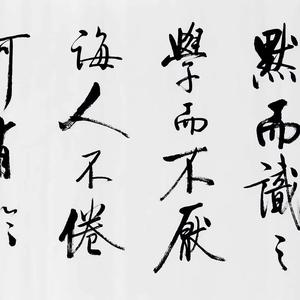 默而識之
學而不厭
誨人不倦
何有於